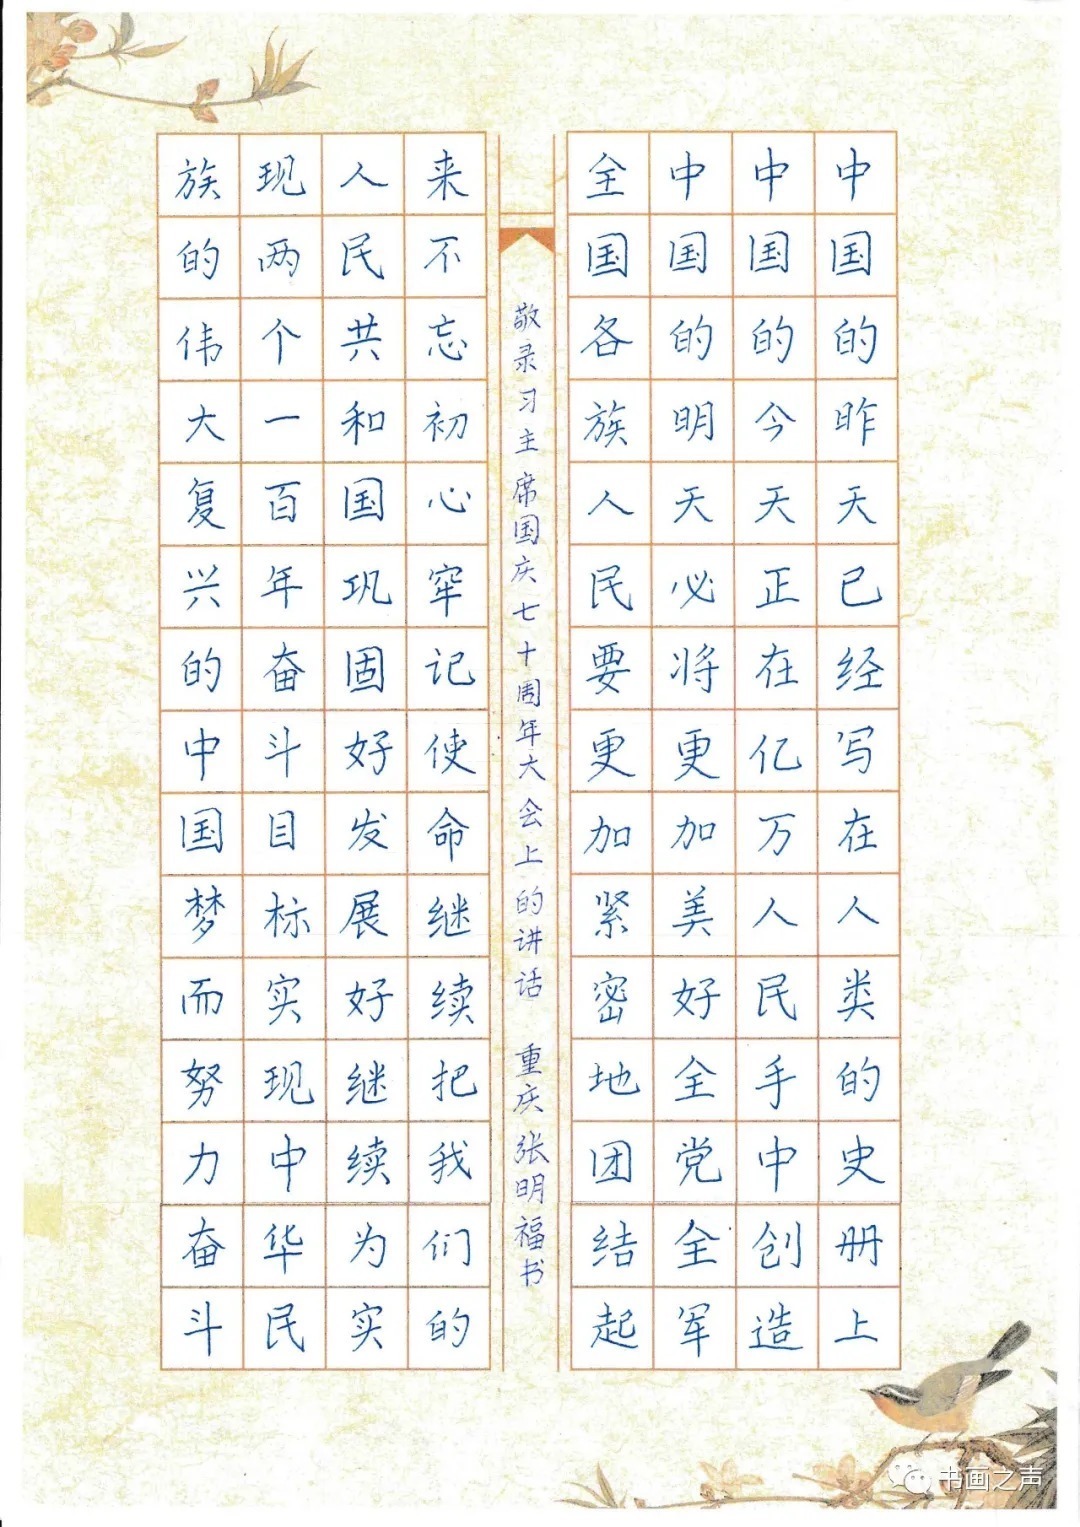 中国的昨天已经写在人类的史册上
中国的今天正在亿万人民手中创造
中国的明天必将更加美好全党全军
全国各族人民要更加紧密地团结起
来不忘初心牢记使命继续把我们的
人民共和国巩固好发展好继续为实
现两个一百年奋斗目标实现中华民
族的伟大复兴的中国梦而努力奋斗
敬录习主席国庆七十周年大会上的讲话 重庆张明福书
书画之声